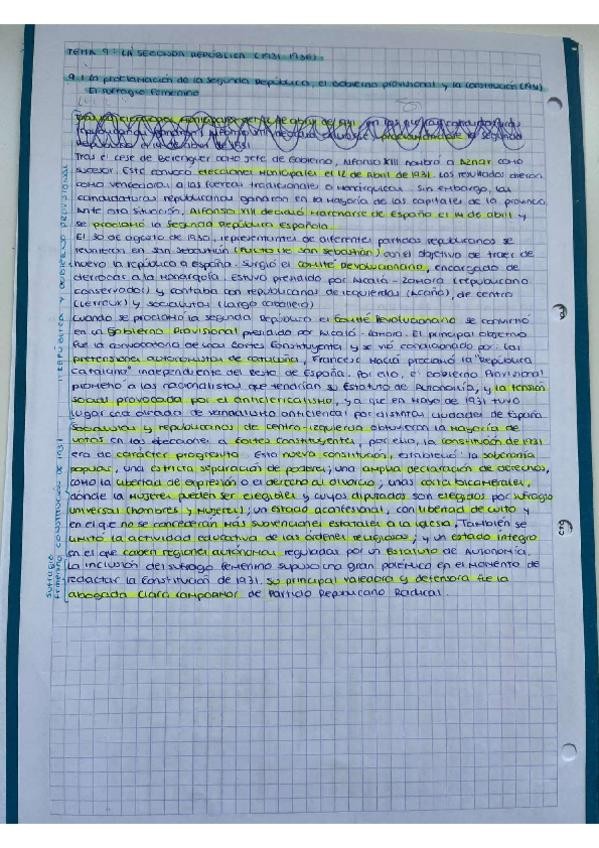 TEMA 9: LA SEGUNDA REPÚBLICA (1931-1936)
9.1 La proclamación de la Segunda República, el Gobierno provisional y la constitución (1931)
El sufragio femenino
Tras el cese de Berenguer como jefe de Gobierno, Alfonso XIII nombró a Aznar como
sucesor. Este convocó elecciones Municipales el 12 de Abril de 1931. Los resultados dieron
como vencedoras a las fuerzas tradicionales o Monárquicas. Sin embargo, las
candidaturas republicanas ganaron en la Mayoría de las capitales de la provincia.
Ante esta situación, Alfonso XIII decidió Marcharse de España el 14 de abril y
se proclamó la Segunda República Española.
El 30 de agosto de 1930, representantes de diferentes partidos republicanos se
reunieron en San Sebastián (Pacto de San Sebastián) con el objetivo de traer de
nuevo la república a España. Surgió el Comité Revolucionario, encargado de
derrocar a la Monarquía. Estuvo presidido por Alcalá-Zamora (republicano
conservador) y contaba con republicanos de izquierdas (Azaña), de centro
(Lerroux) y socialistas (Largo Caballero)
Cuando se proclamó la segunda República el Comité Revolucionario se convirtió
en un Gobierno Provisional presidido por Alcalá-Zamora. El principal objetivo
fue la convocatoria de unas Cortes Constituyentes y se vio condicionado por: las
pretensiones autonomistas de Cataluña, Francesc Macià proclamó la "República
catalana" independiente del resto de España. Por ello, el Gobierno Provisional
prometió a los nacionalistas que tendrían su Estatuto de Autonomía, y la tensión
social provocada por el anticlericalismo, ya que en Mayo de 1931 tuvo
lugar una oleada de vandalismo anticlerical por distintas ciudades de España
Socialistas y republicanos de centro-izquierda obtuvieron la Mayoría de
votos en las elecciones a Cortes Constituyentes, por ello, la constitución de 1931
era de carácter progresista. Esta nueva constitución, estableció: la soberanía
popular, una estricta separación de poderes; una amplia declaración de derechos,
como la libertad de expresión o el derecho al divorcio; unas cortes bicamerales,
donde la Mujeres pueden ser elegibles y cuyos diputados son elegidos por sufragio
universal (hombres y Mujeres); un estado aconfesional, con libertad de culto y
en el que no se concederán más subvenciones estatales a la iglesia. También se
limitó la actividad educativa de las órdenes religiosas; y un estado íntegro
en el que caben regiones autónomas reguladas por un Estatuto de Autonomía.
La inclusión del sufragio femenino supuso una gran polémica en el Momento de
redactar la Constitución de 1931. Su principal valedora y defensora fue la
abogada Clara Campoamor de Partido Republicano Radical.
REPÚBLICA Y GOBIERNO PROVISIONAL
CONSTITUCIÓN DE 1931
Sufragio
Femenino